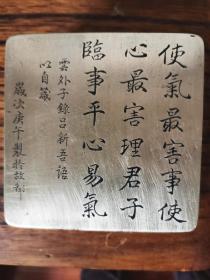 使氣最害事使
心最害理君子
臨事平心易氣
雲外子錄呂新吾語
以自箴
歲次庚午製於故都